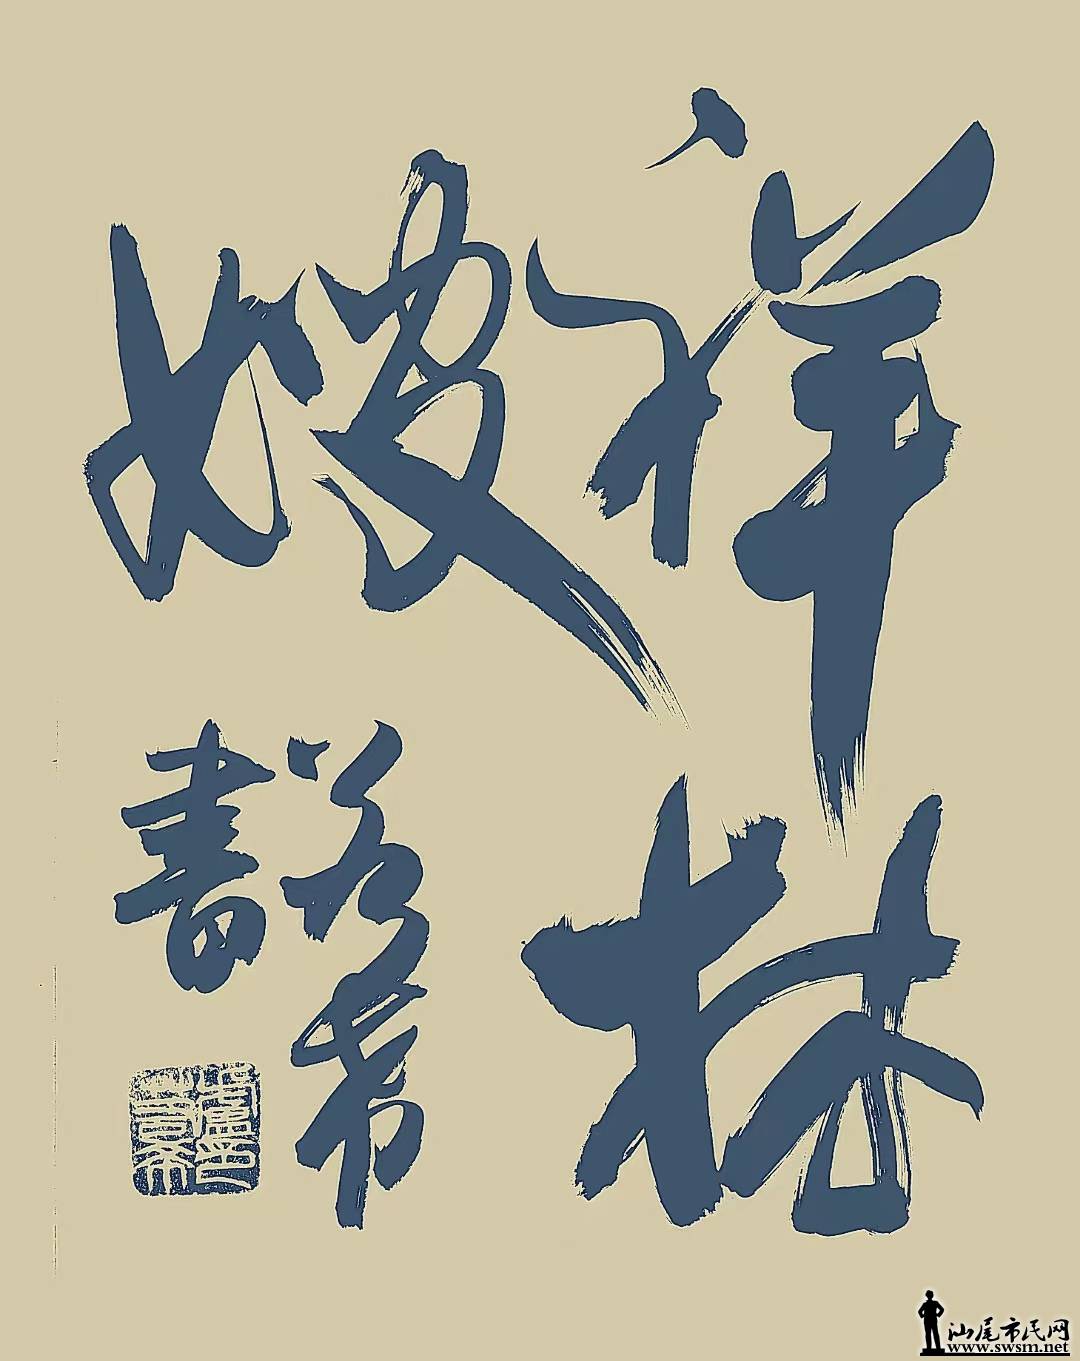 祥林
嫂
若希
書
汕尾市民网
www.swsm.net